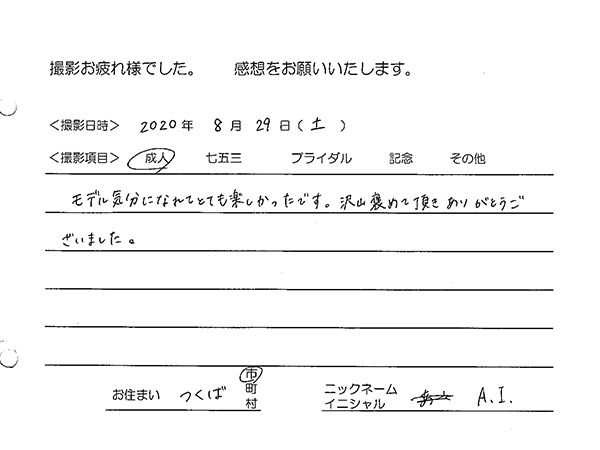 撮影お疲れ様でした。 感想をお願いいたします。
＜撮影日時＞ 2020年 8月 29日(土)
＜撮影項目＞ 成人 七五三 ブライダル 記念 その他
モデル気分になれてとても楽しかったです。沢山褒めて頂きありがとうご
ざいました。
お住まい つくば 市
町
村
ニックネーム
イニシャル A.I.